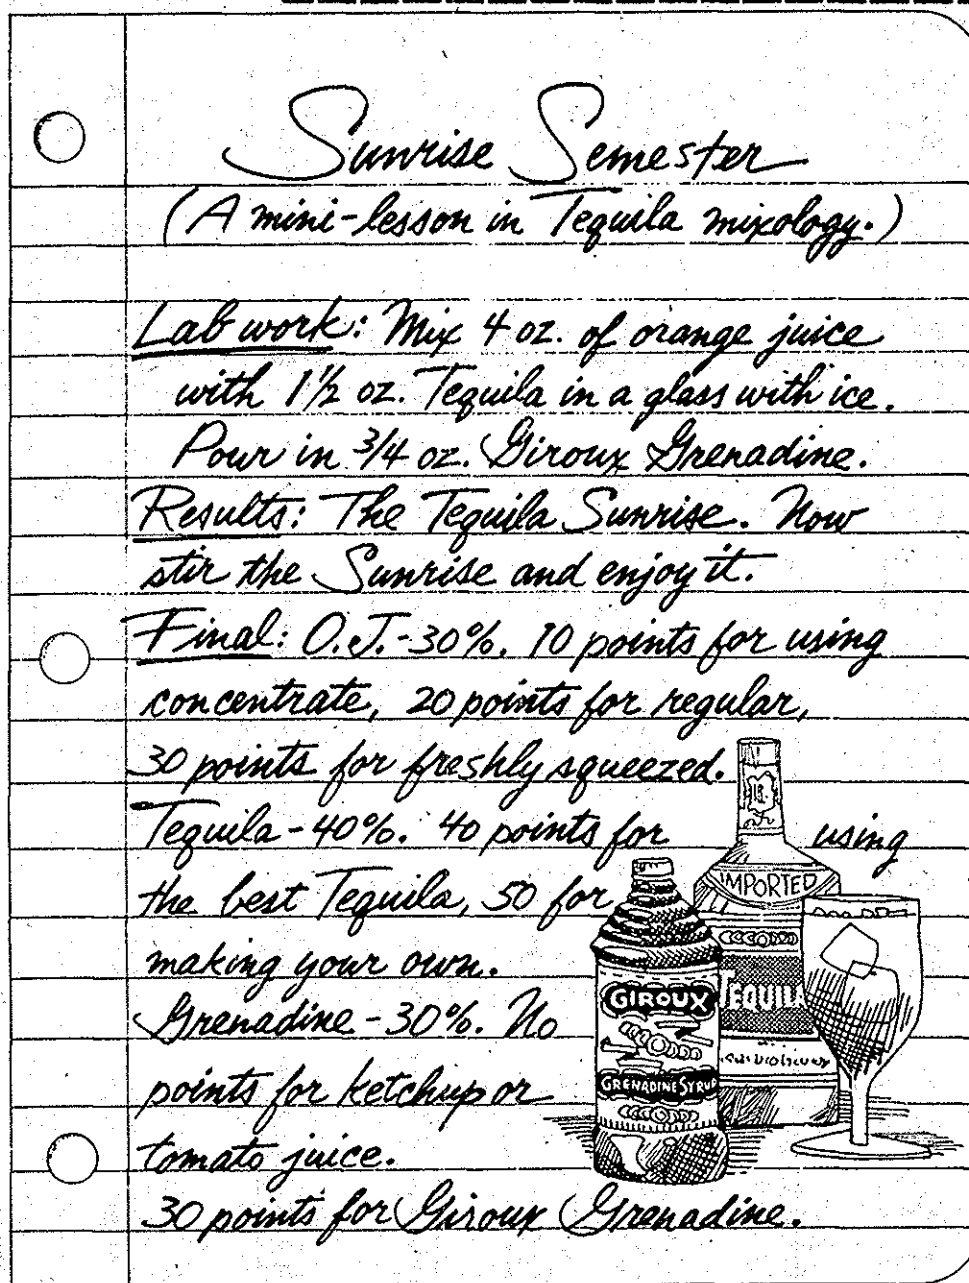 Sunrise Semester
(A mini-lesson in Tequila mixology.)
Lab work: Mix 4 oz. of orange juice
with 1½ oz. Tequila in a glass with ice.
Pour in ¾ oz. Giroux Grenadine.
Results: The Tequila Sunrise. Now
stir the Sunrise and enjoy it.
Final: O.J.-30%. 10 points for using
concentrate, 20 points for regular,
30 points for freshly squeezed.
Tequila-40%. 40 points for using
the best Tequila, 50 for
making your own.
Grenadine-30%. No
points for ketchup or
tomato juice.
30 points for Giroux Grenadine.
IMPORTED
TEQUILA
GIROUX
GRENADINE SYRUP